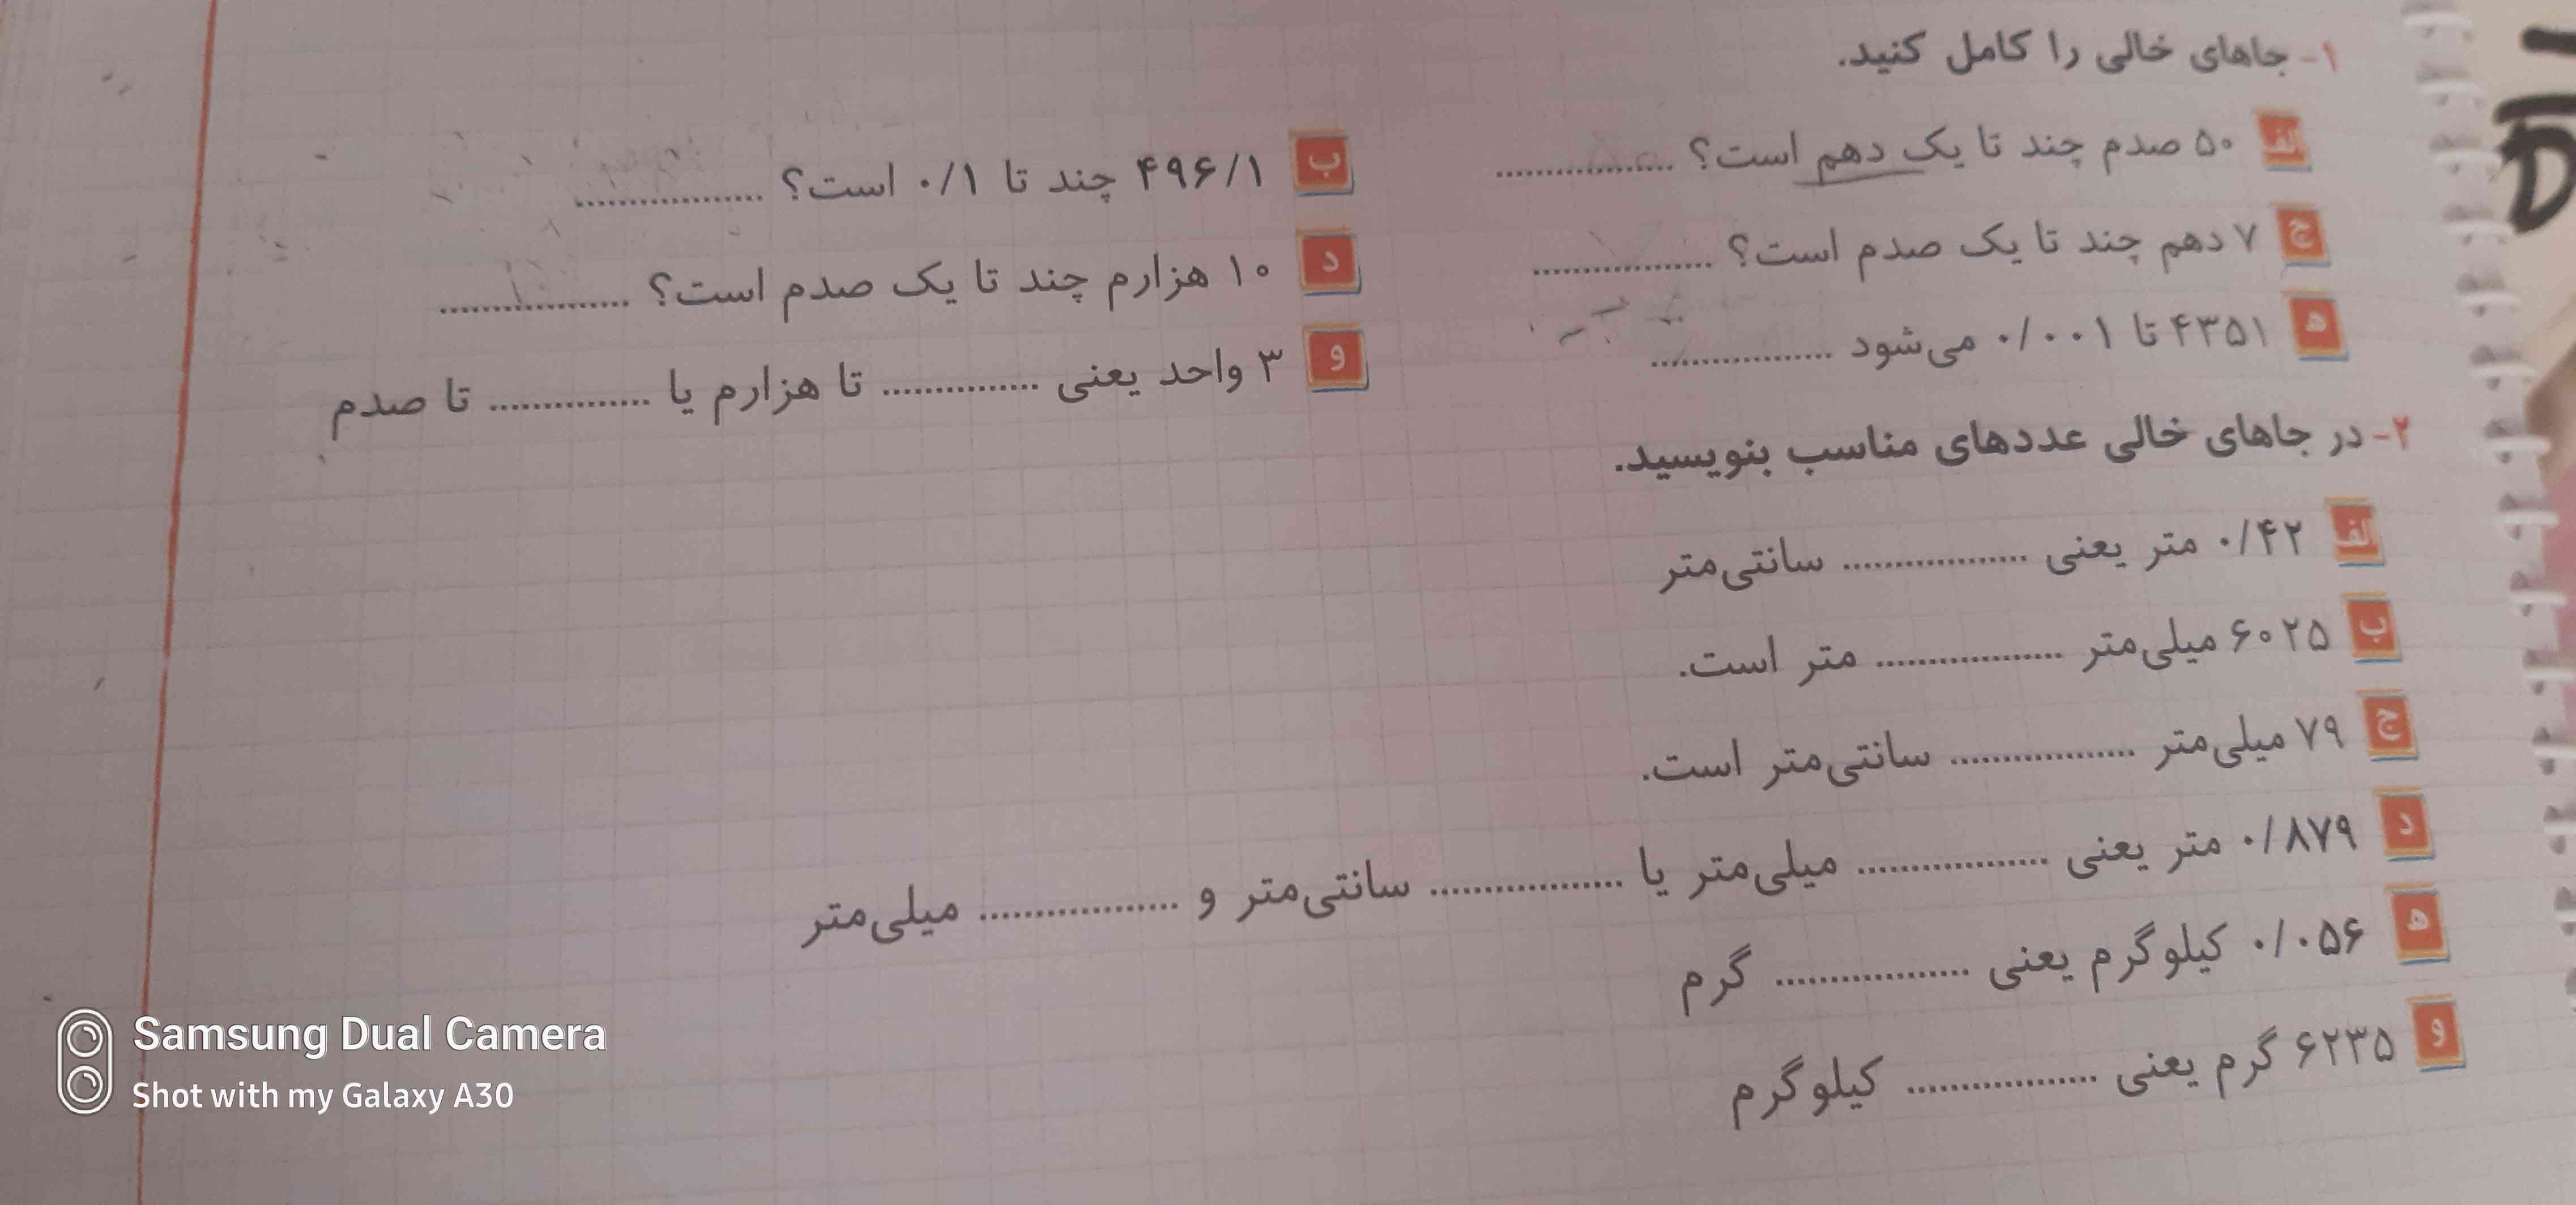 ۱- جاهای خالی را کامل کنید.
الف ۵۰ صدم چند تا یک دهم است؟ ..................
ب ۴۹۶/۱ چند تا ۰/۱ است؟ ..................
ج ۷ دهم چند تا یک صدم است؟ ..................
د ۱۰ هزارم چند تا یک صدم است؟ ..................
ه ۴۳۵۱ تا ۰/۰۰۱ می‌شود ..................
و ۳ واحد یعنی ............... تا هزارم یا ............... تا صدم
۲- در جاهای خالی عددهای مناسب بنویسید.
الف ۰/۴۲ متر یعنی .................. سانتی‌متر
ب ۶۰۲۵ میلی‌متر .................. متر است.
ج ۷۹ میلی‌متر .................. سانتی‌متر است.
د ۰/۸۷۹ متر یعنی .................. میلی‌متر یا .................. سانتی‌متر و .................. میلی‌متر
ه ۰/۰۵۶ کیلوگرم یعنی .................. گرم
و ۶۲۳۵ گرم یعنی .................. کیلوگرم
Samsung Dual Camera
Shot with my Galaxy A30